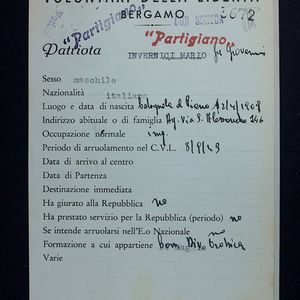 VOLONTARI DELLA LIBERTA'
BERGAMO
"Partigiano"
672
"Partigiano"
Patriota INVERNICI MARIO fu Giovanni
Sesso maschile
Nazionalità italiana
Luogo e data di nascita Bolognola di Piano 12/4/1909
Indirizzo abituale o di famiglia Bg - Via S. Alessandro
Occupazione normale imp.
Periodo di arruolamento nel C.V.L. 8/9/43
Data di arrivo al centro
Data di Partenza
Destinazione immediata
Ha giurato alla Repubblica no
Ha prestato servizio per la Repubblica (periodo) no
Se intende arruolarsi nell'E.o Nazionale no
Formazione a cui appartiene Div. Orobica
Varie